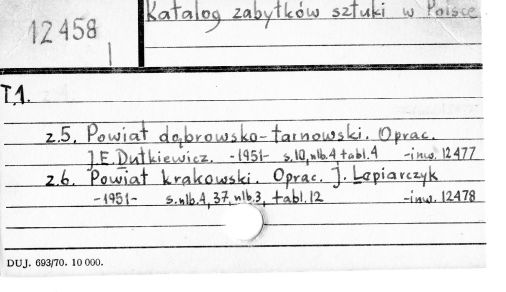 Katalog zabytków sztuki w Polsce
12458
T.1.
z.5. Powiat dąbrowsko-tarnowski. Oprac.
J.E. Dutkiewicz. -1951- s.10, nlb.4, tabl.4 -inw. 12477
z.6. Powiat krakowski. Oprac. J. Lepiarczyk
-1951- s.nlb.4, 37, nlb.3, tabl.12 -inw. 12478
DUJ. 693/70. 10 000.